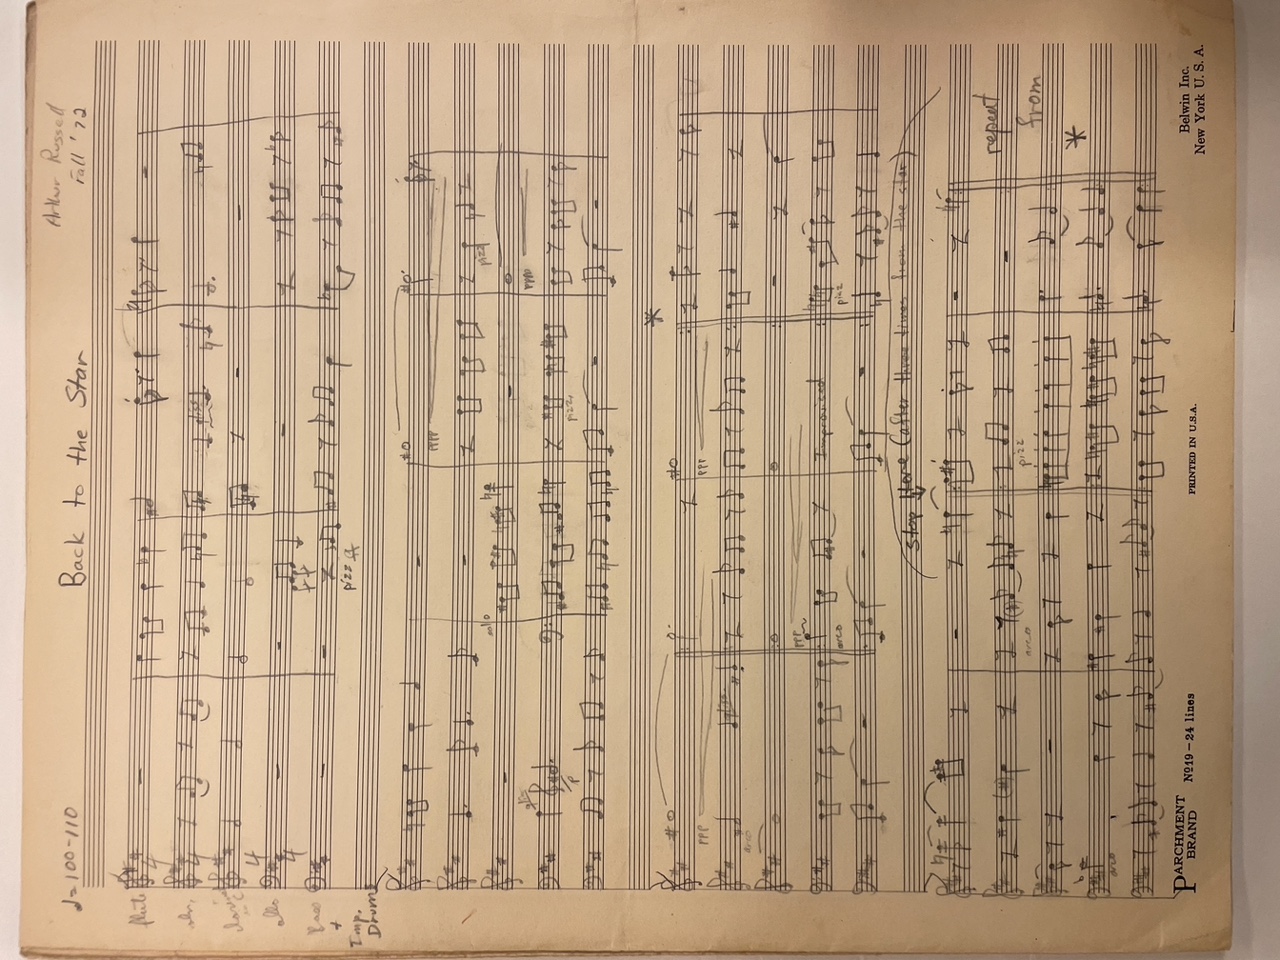 Arthur Russell
Fall '72
Back to the Star
♩=100-110
flute
Bass
+
Imp.
Drums
pizz
solo
ppp
pizz
pizz
pppp
*
ppp
arco
ppp
ppp
arco
Improvised
pizz
Stop Here (after three times from the star)
arco
arco
pizz
repeat
from
*
PARCHMENT
BRAND
Nº 19 – 24 lines
PRINTED IN U.S.A.
Belwin Inc.
New York U. S. A.